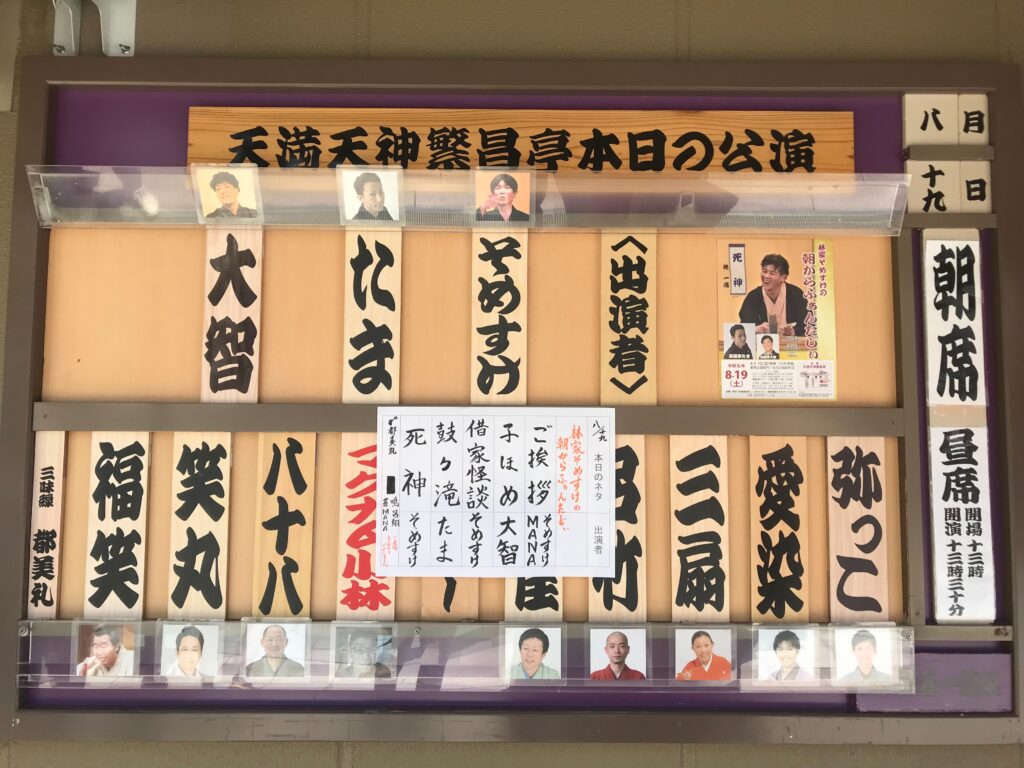 天満天神繁昌亭本日の公演
八月
十九日
朝席
昼席
開場 十三時
開演 十三時三十分
〈出演者〉
そめすけ
たま
大智
林家そめすけの
朝からふぁんたじぃ
死神
桂一瑞
8・19
(土)
弥っこ
愛染
三扇
呂竹
八十八
笑丸
福笑
三味線 都美礼
小林
八/十九 本日のネタ 出演者
林家そめすけの
朝からふぁんたじぃ
ご挨拶 そめすけ MANA
子ほめ 大智
借家怪談 そめすけ
鼓ヶ滝 たま
死神 そめすけ